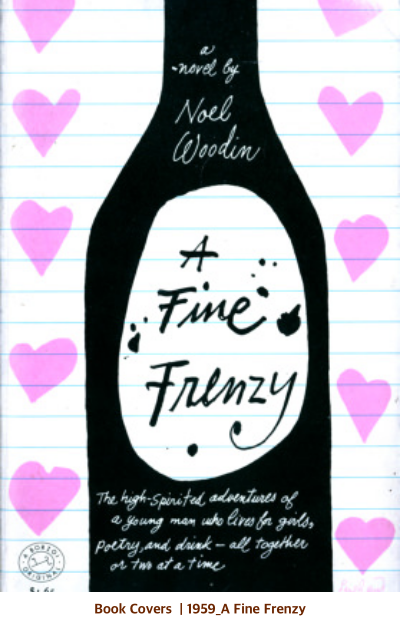 a
novel by
Noel
Woodin
A
Fine
Frenzy
The high-spirited adventures of
a young man who lives for girls,
poetry, and drink — all together
or two at a time
A BORZOI
ORIGINAL
Book Covers | 1959_A Fine Frenzy